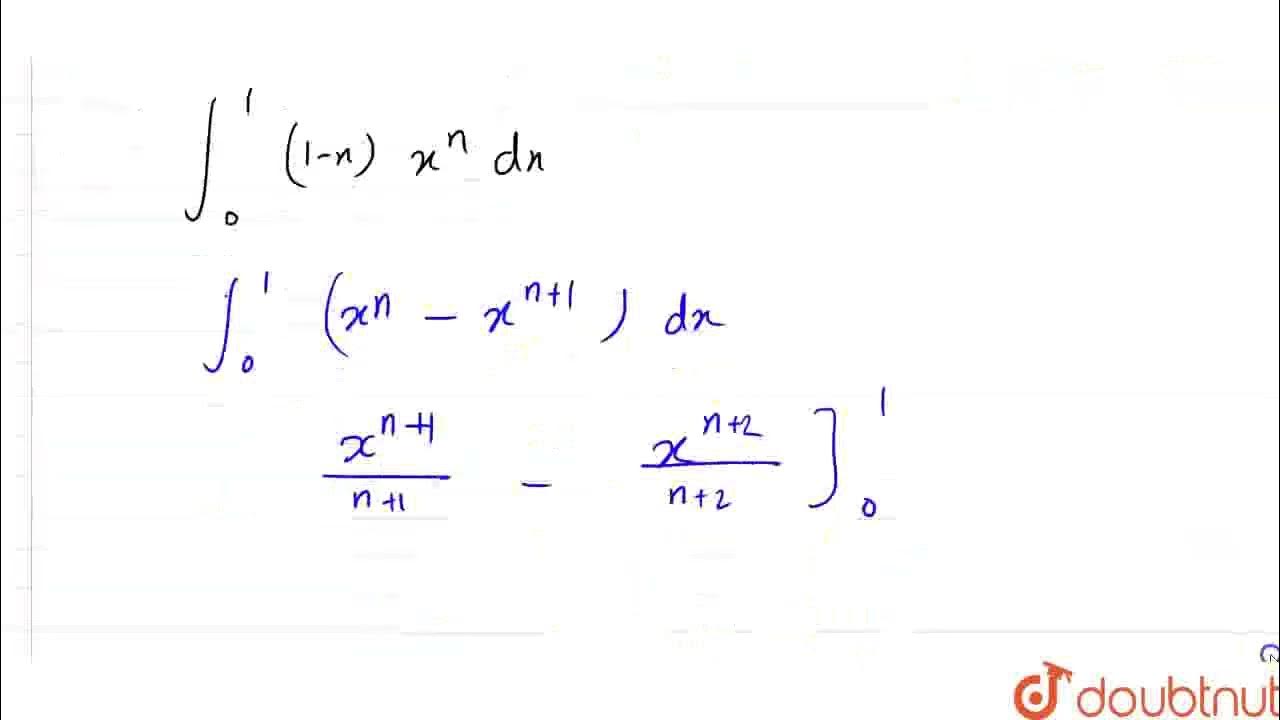 ∫₀¹ (1-x) xⁿ dx
∫₀¹ (xⁿ - xⁿ⁺¹) dx
xⁿ⁺¹/n+1 - xⁿ⁺²/n+2 ]₀¹
doubtnut